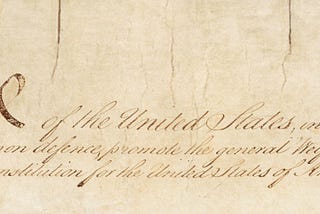 of the United States, in
on defence, promote the general We
nstitution for the United States of A